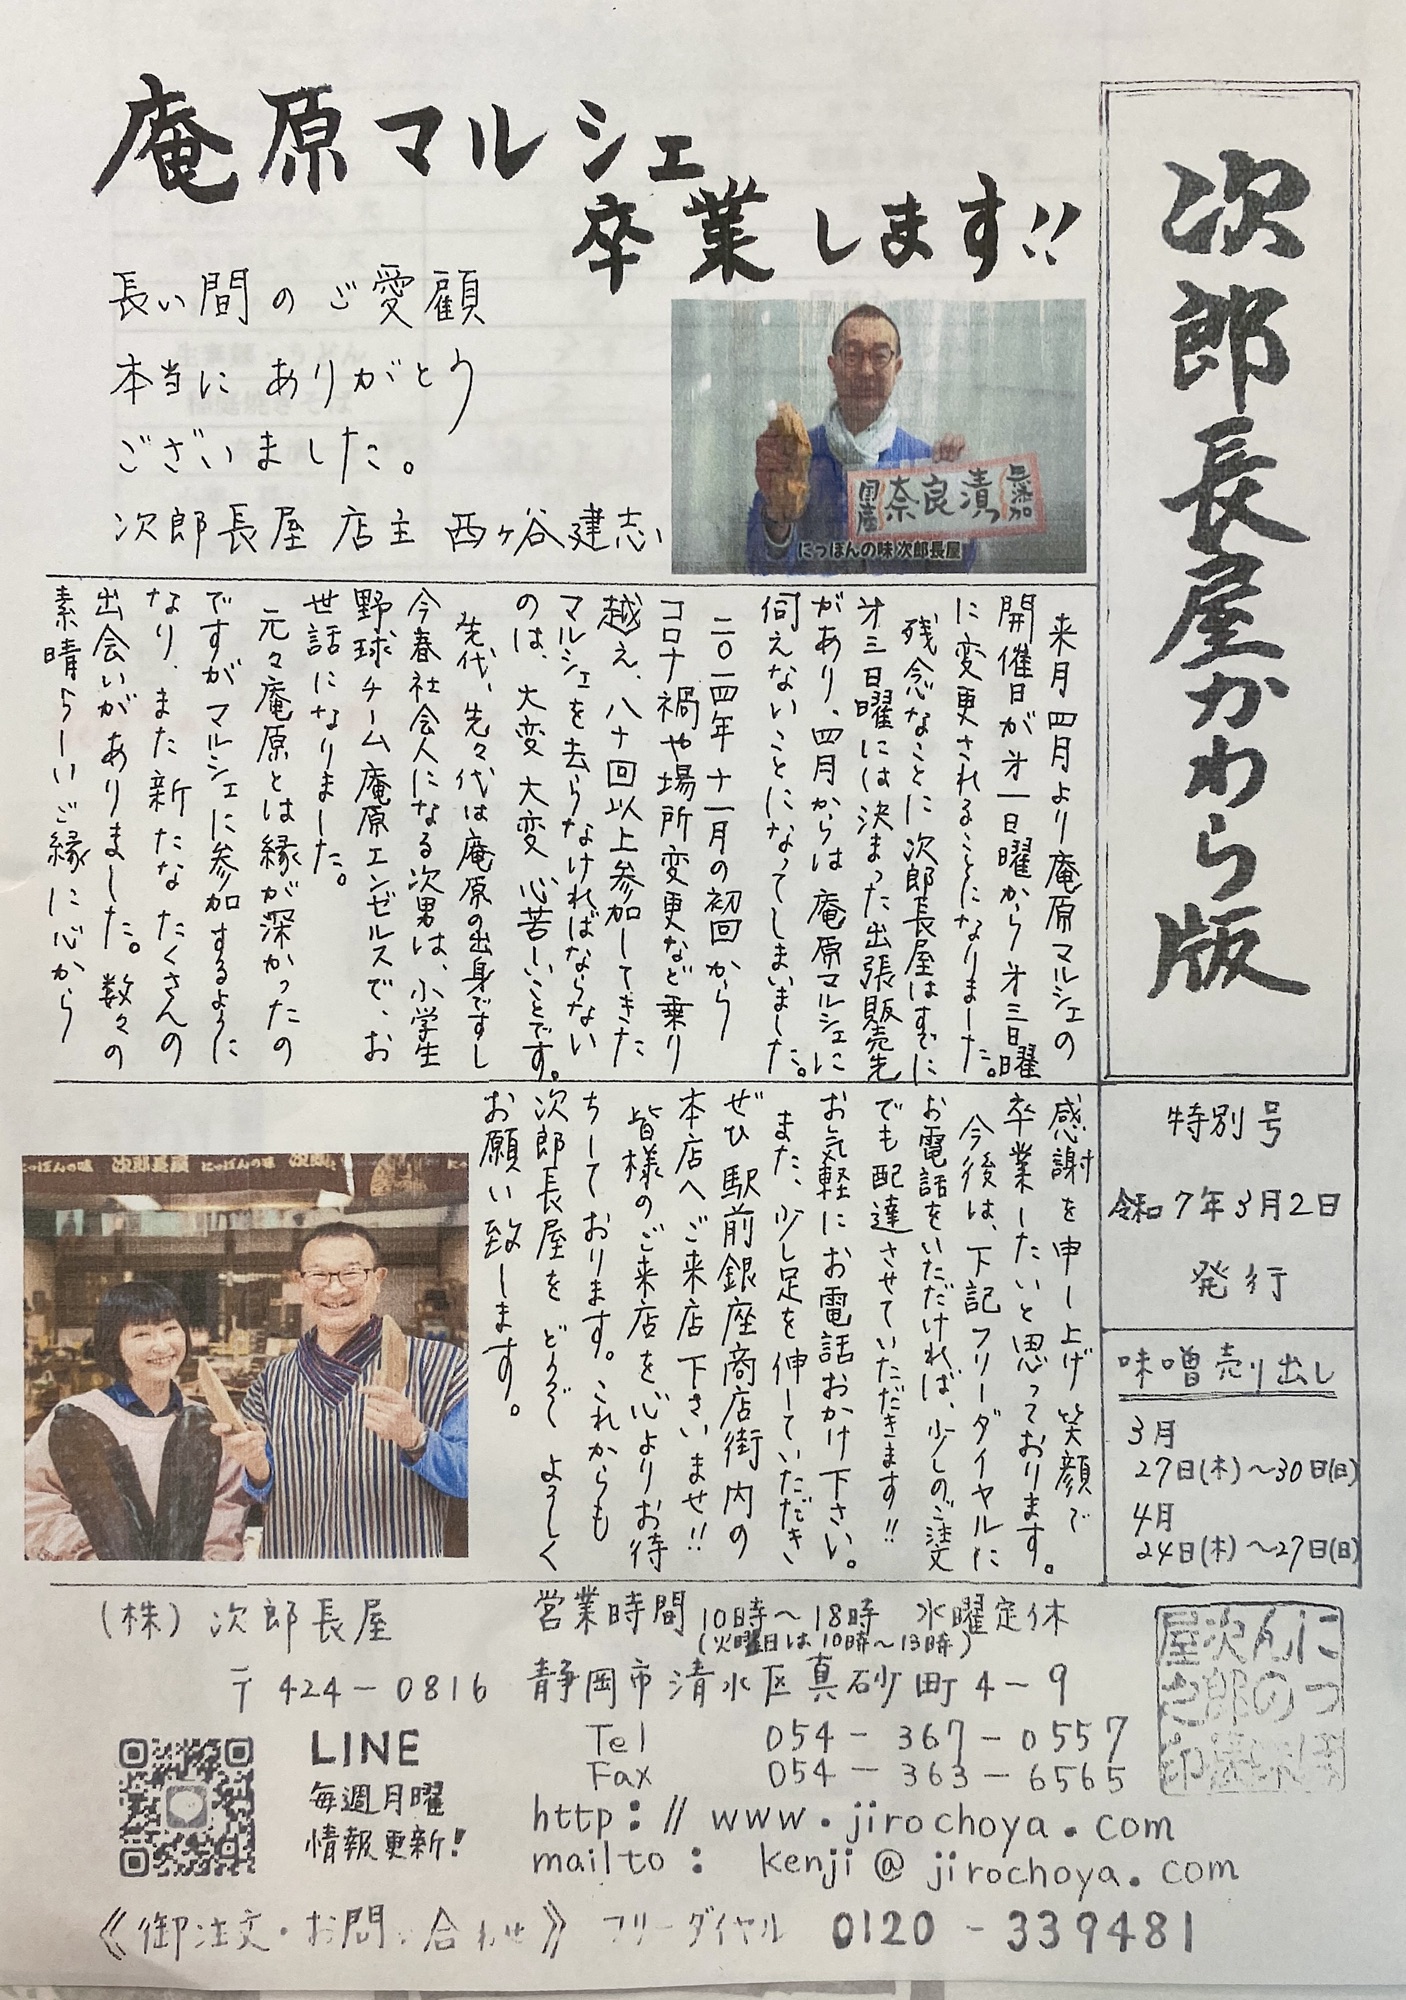 次郎長屋かわら版
庵原マルシェ
卒業します!!
長い間のご愛顧
本当に ありがとう
ございました。
次郎長屋 店主 西ヶ谷建志
国産
奈良漬
無添加
にっぽんの味 次郎長屋
来月四月より庵原マルシェの
開催日が才一日曜から才三日曜
に変更されることになりました。
残念なことに次郎長屋はすでに
才三日曜には決まった出張販売先
があり、四月からは庵原マルシェに
伺えないことになってしまいました。
二〇一四年十一月の初回から
コロナ禍や場所変更など乗り
越え、八十回以上参加してきた
マルシェを去らなければならない
のは、大変大変心苦しいことです。
先代、先々代は庵原の出身ですし
今春社会人になる次男は、小学生
野球チーム庵原エンゼルスで、お
世話になりました。
元々庵原とは縁が深かったの
ですがマルシェに参加するように
なり、また新たなたくさんの
出会いがありました。数々の
素晴らしいご縁に心から
感謝を申し上げ笑顔で
卒業したいと思っております。
今後は、下記フリーダイヤルに
お電話をいただければ、少しのご注文
でも配達させていただきます!!
お気軽にお電話おかけ下さい。
また、少し足を伸していただき
ぜひ駅前銀座商店街内の
本店へご来店下さいませ!!
皆様のご来店を心よりお待
ちしております。これからも
次郎長屋をどうぞよろしく
お願い致します。
特別号
令和7年3月2日
発行
味噌売り出し
3月
27日(木)〜30日(日)
4月
24日(木)〜27日(日)
にっぽんの味 次郎長屋 にっぽんの味
(株)次郎長屋
営業時間 10時〜18時 水曜定休
(火曜日は10時〜13時)
〒424-0816 静岡市清水区真砂町4-9
Tel 054-367-0557
Fax 054-363-6565
LINE
毎週月曜
情報更新!
http://www.jirochoya.com
mailto: kenji@jirochoya.com
《御注文・お問い合わせ》 フリーダイヤル 0120-339481